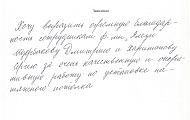 Хочу выразить огромную благодар-
ность сотрудникам ф-мы,
Дмитрию и Харитонову
Сергею за очень качественную и опера-
тивную работу по установке на-
тяжного потолка